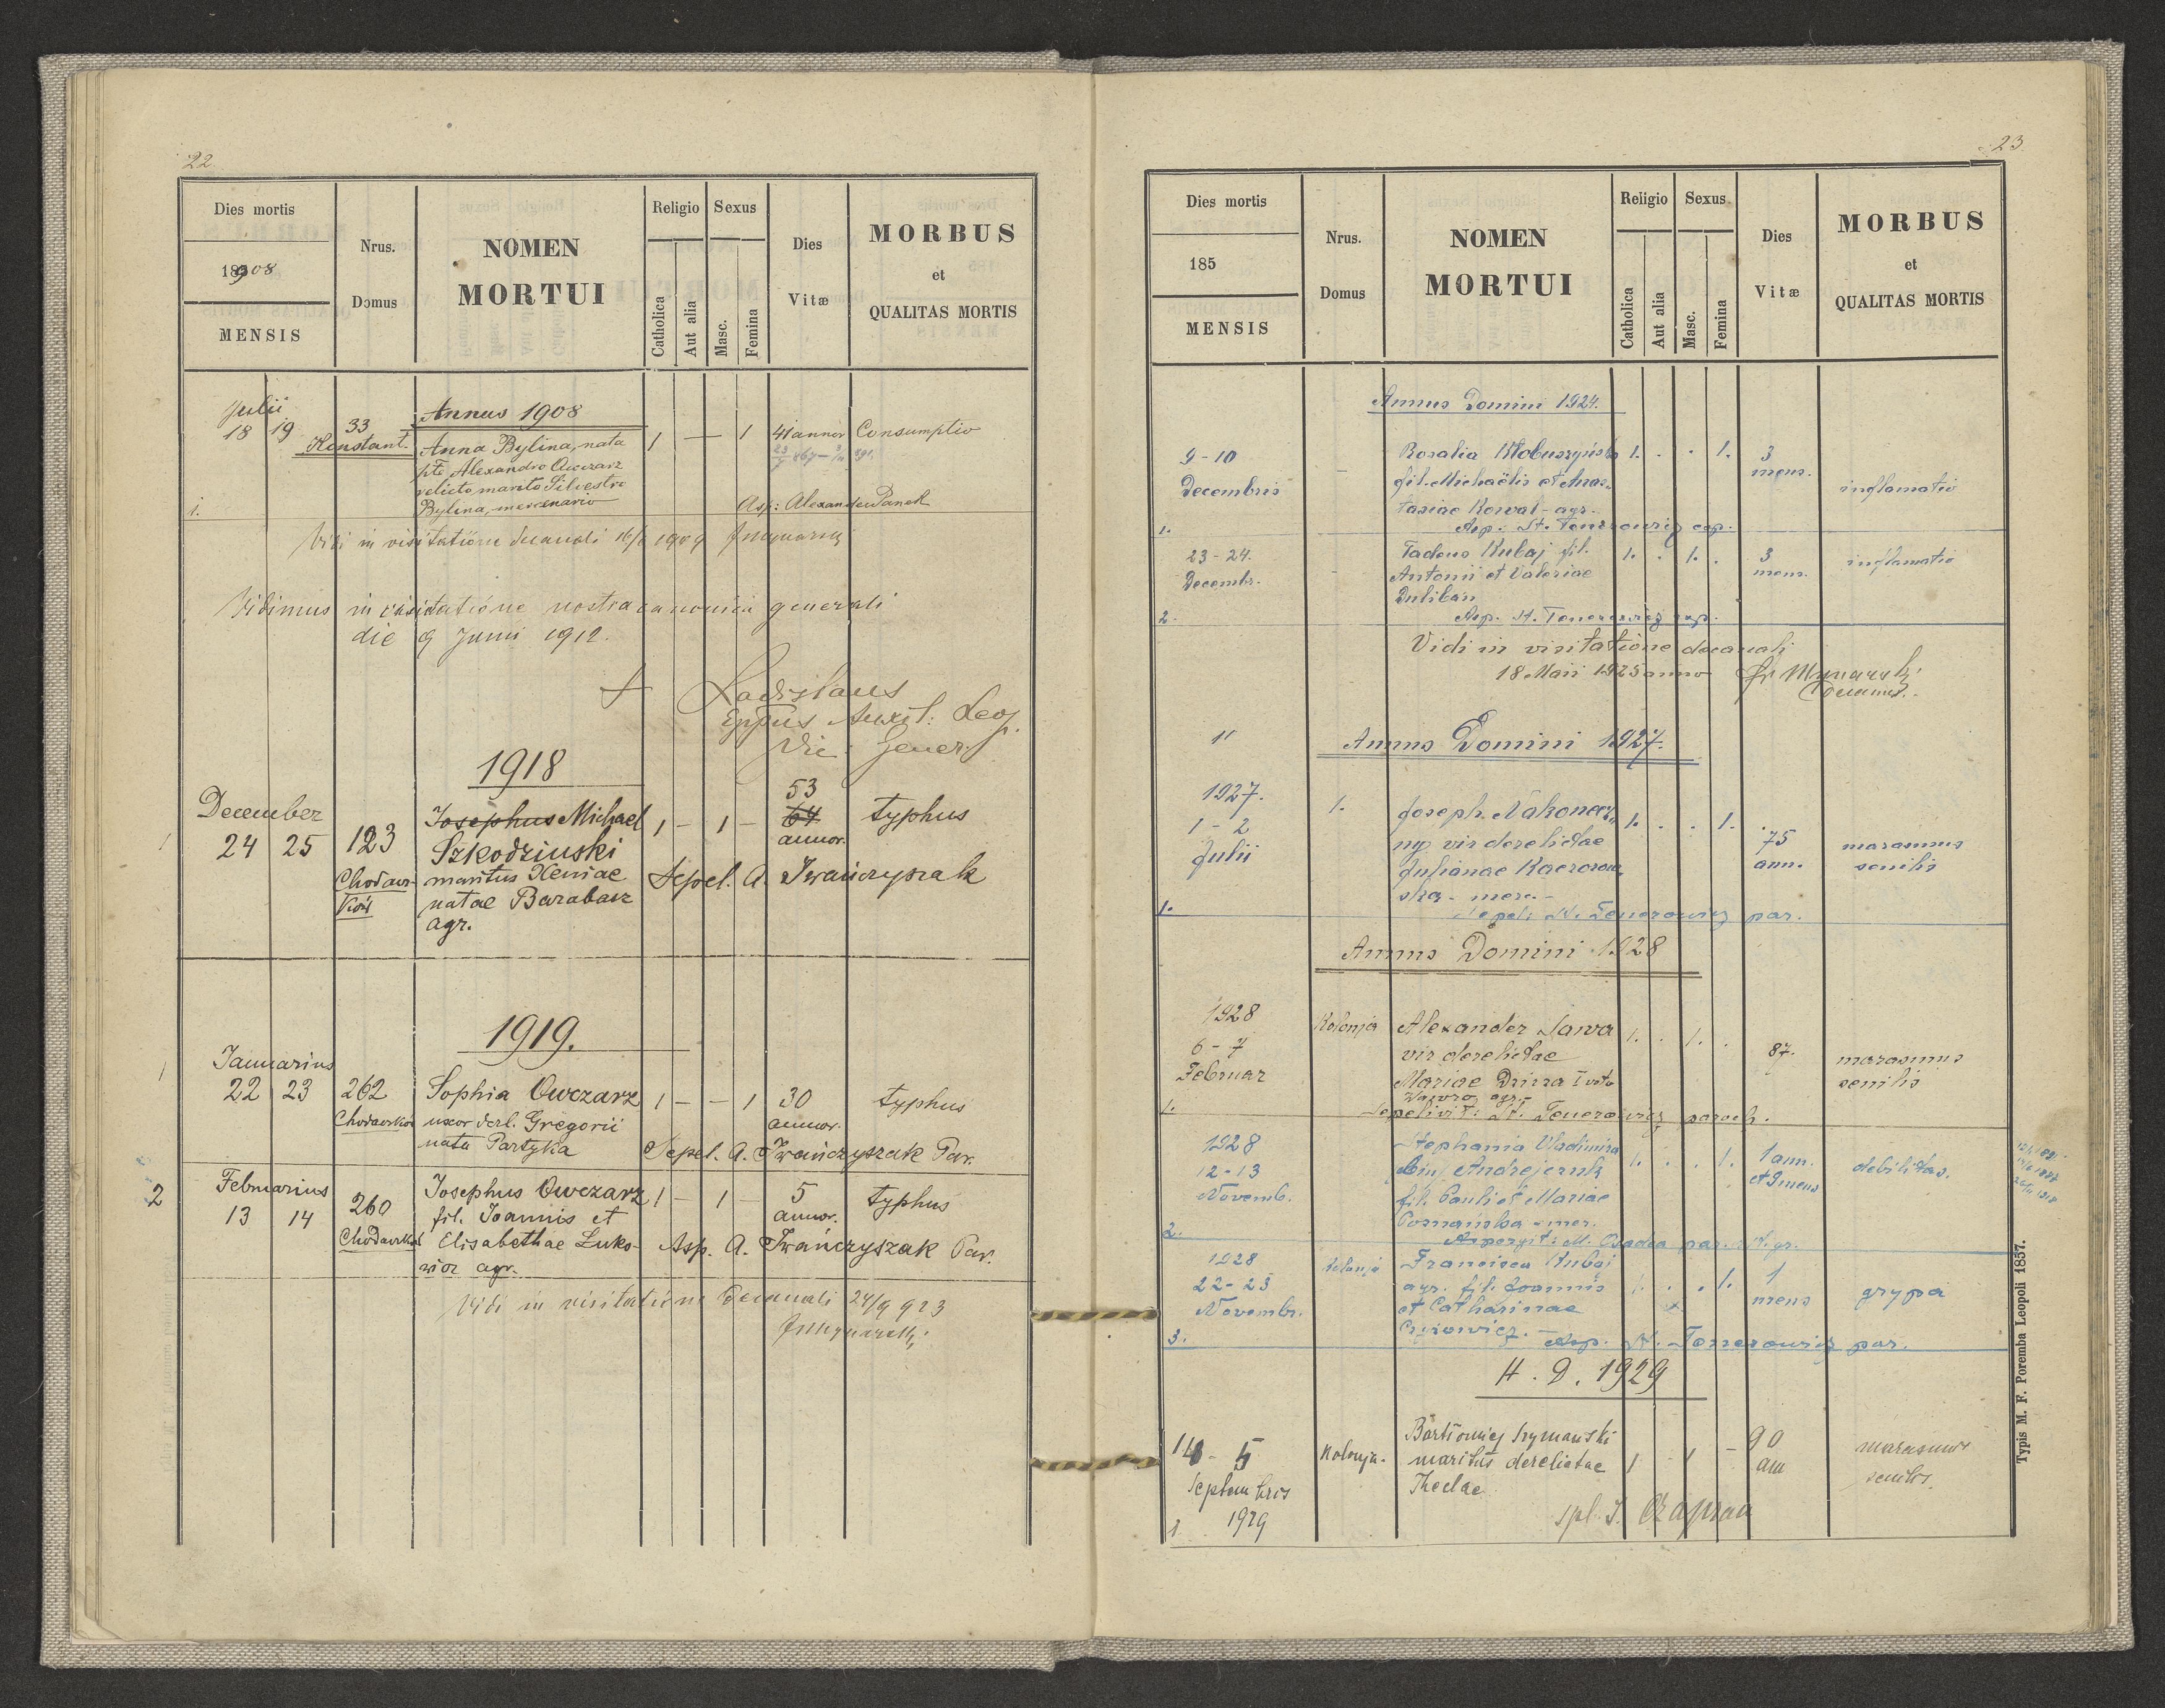 22.
Dies mortis
1908
MENSIS
Nrus.
Domus
NOMEN
MORTUI
Religio
Catholica
Aut alia
Sexus
Masc.
Femina
Dies
Vitæ
MORBUS
et
QUALITAS MORTIS
Annus 1908
Julii
18 19
33
Konstant.
Anna Bylina, nata
pte Alexandro Owczarz
relicto marito Silvestro
Bylina, mercenario
1 — 1
41 annor
Consumptio
Asp: Alexander Panek
1.
Vidi in visitatione decanali 1909
Vidimus in visitatione nostra canonica generali
die 9 Junii 1912.
Ladislaus
Eppus Auxil: Leop.
Vic. Gener.
1918
December
1
24 25
123
Chodacz-
ków
Josephus Michael
Szkodziuski
maritus Xeniae
natae Barabasz
agr.
1 — 1 —
53
64
annor.
typhus
Sepel. A. Iwańczyszak
1919.
Januarius
1
22 23
262
Chodaczków
Sophia Owczarz
uxor derl. Gregorii
nata Partyka
1 — — 1
30
annor.
typhus
Sepel. A. Iwańczyszak Par.
Februarius
2
13 14
260
Chodaczków
Josephus Owczarz
fil. Joannis et
Elisabethae Luko-
wicz agr.
1 — 1 —
5
annor.
typhus
Asp. A. Iwańczyszak Par.
Vidi in visitatione decanali 24/9 923
23.
Dies mortis
185
MENSIS
Nrus.
Domus
NOMEN
MORTUI
Religio
Catholica
Aut alia
Sexus
Masc.
Femina
Dies
Vitæ
MORBUS
et
QUALITAS MORTIS
Annus Domini 1924.
9-10
Decembris
Rosalia
fil. Michaëlis et Anas-
tasiae Kowal - agr.
1. . . 1.
3
mens.
inflamatio
Asp. St. Tenerowicz exp.
1.
23-24.
Decembr.
Tadeus Kubaj fil.
Antonii et Valeriae
Duliban
1. . 1. .
3
mens.
inflamatio
2.
Asp. St. Tenerowicz exp.
Vidi in visitatione decanali
18 Maii 1925 anno
Annus Domini 1927.
1927.
1-2
Julii
1.
Joseph. Nakonecz-
ny vir derelictae
Julianae
ska - merc.
1. . . 1.
75
ann.
marasmus
senilis
1.
Sepel: St. Tenerowicz par.
Annus Domini 1928
1928
6-7
Februar
Kolonja
Alexander Sawa
vir derelictae
Mariae I voto
Wawro agr.
1. . 1. .
87.
marasmus
senilis
1.
Sepelivit: St. Tenerowicz paroch.
1928
12-13
Novemb.
Stephania Vladimira
bin. Andrejczuk
fil. Pauli et Mariae
Poznańska - mer.
1. . . 1.
1 ann.
et 9 mens
debilitas.
2.
Aspergit: M. Osadca par. rit. gr.
1928
22-23
Novembr.
Kolonja
Francisca Kubaj
agr. fil. Joannis
et Catharinae
1. . . 1.
1
mens
grypa
3.
Asp. St. Tenerowicz par.
A. D. 1929
14-15
Septembris
1929
Kolonja.
Bartłomiej Szymański
maritus derelictae
Theclae
1 - 1 -
90
ann
marasmus
senilis.
1
spl. J. Czaprau
Typis M. F. Poremba Leopoli 1857.